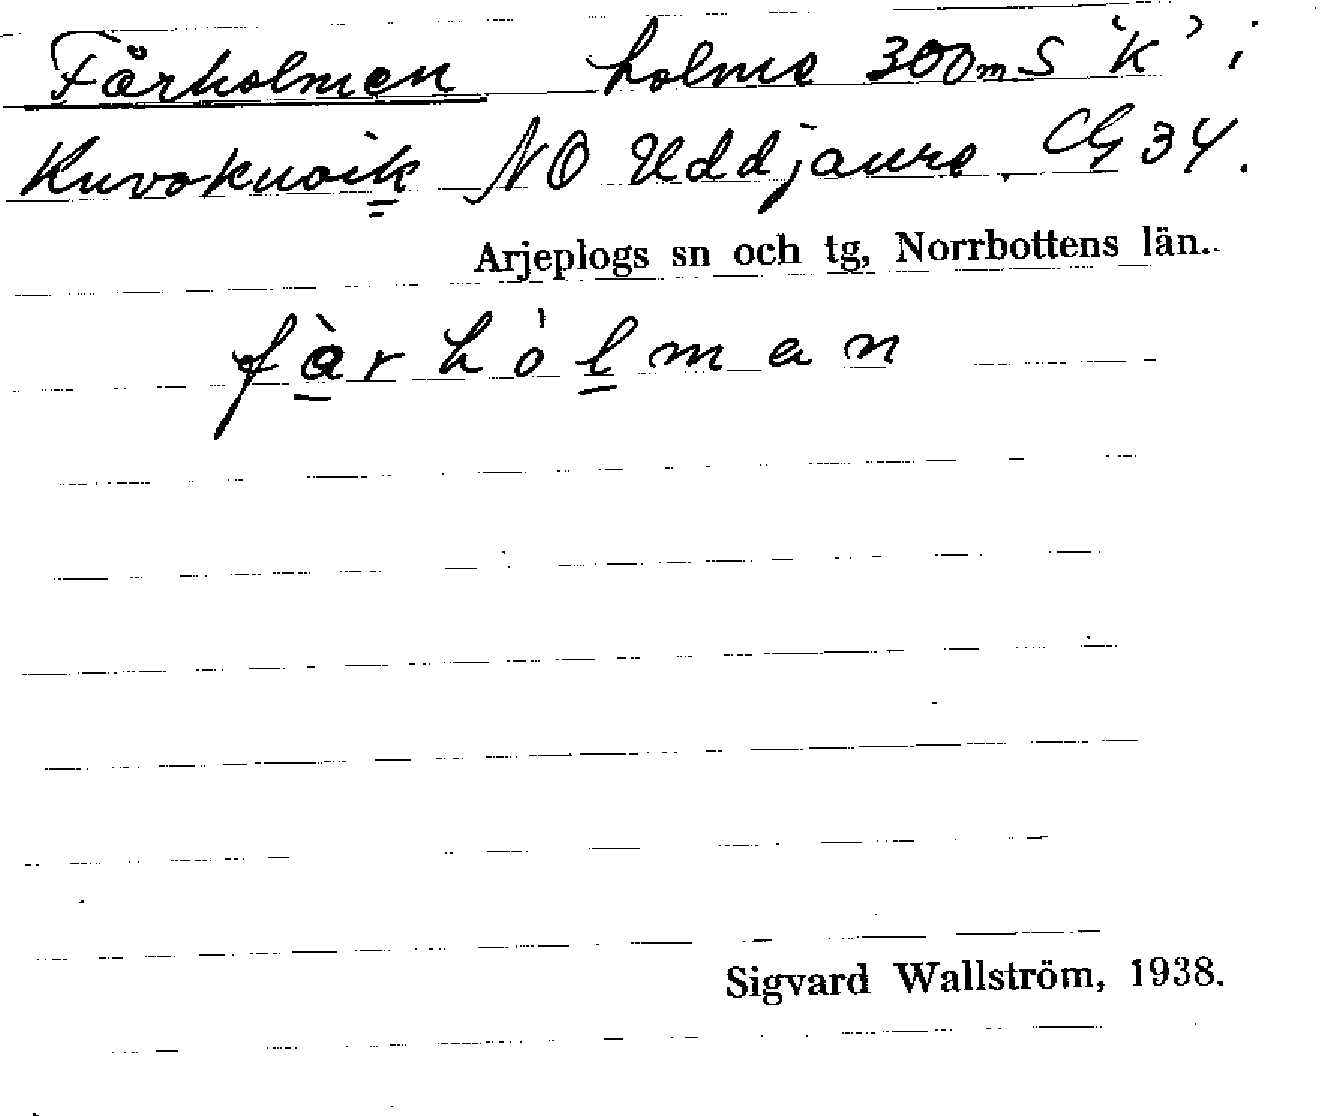 Fårholmen holme 300m S 'K' i
Kuvokuoik NO Uddjaure. CG 34.
Arjeplogs sn och tg, Norrbottens län.
fàrhólman
Sigvard Wallström, 1938.